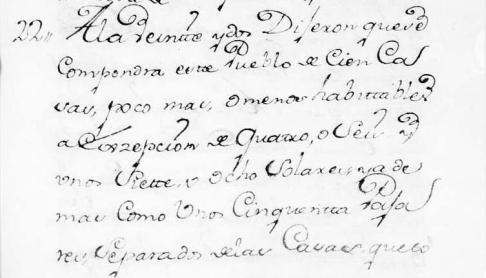 22,, A la Veintte y dos Dijeron que se
Compondra este Pueblo de Cien Cas
sas, poco mas, o menos habittables
a Conzepcion de Quatro, o Seis
Unos Siette, u ocho Solares y a de
mas Como Unos Cinquentta Paja
res, Separados de las Casas, que lo